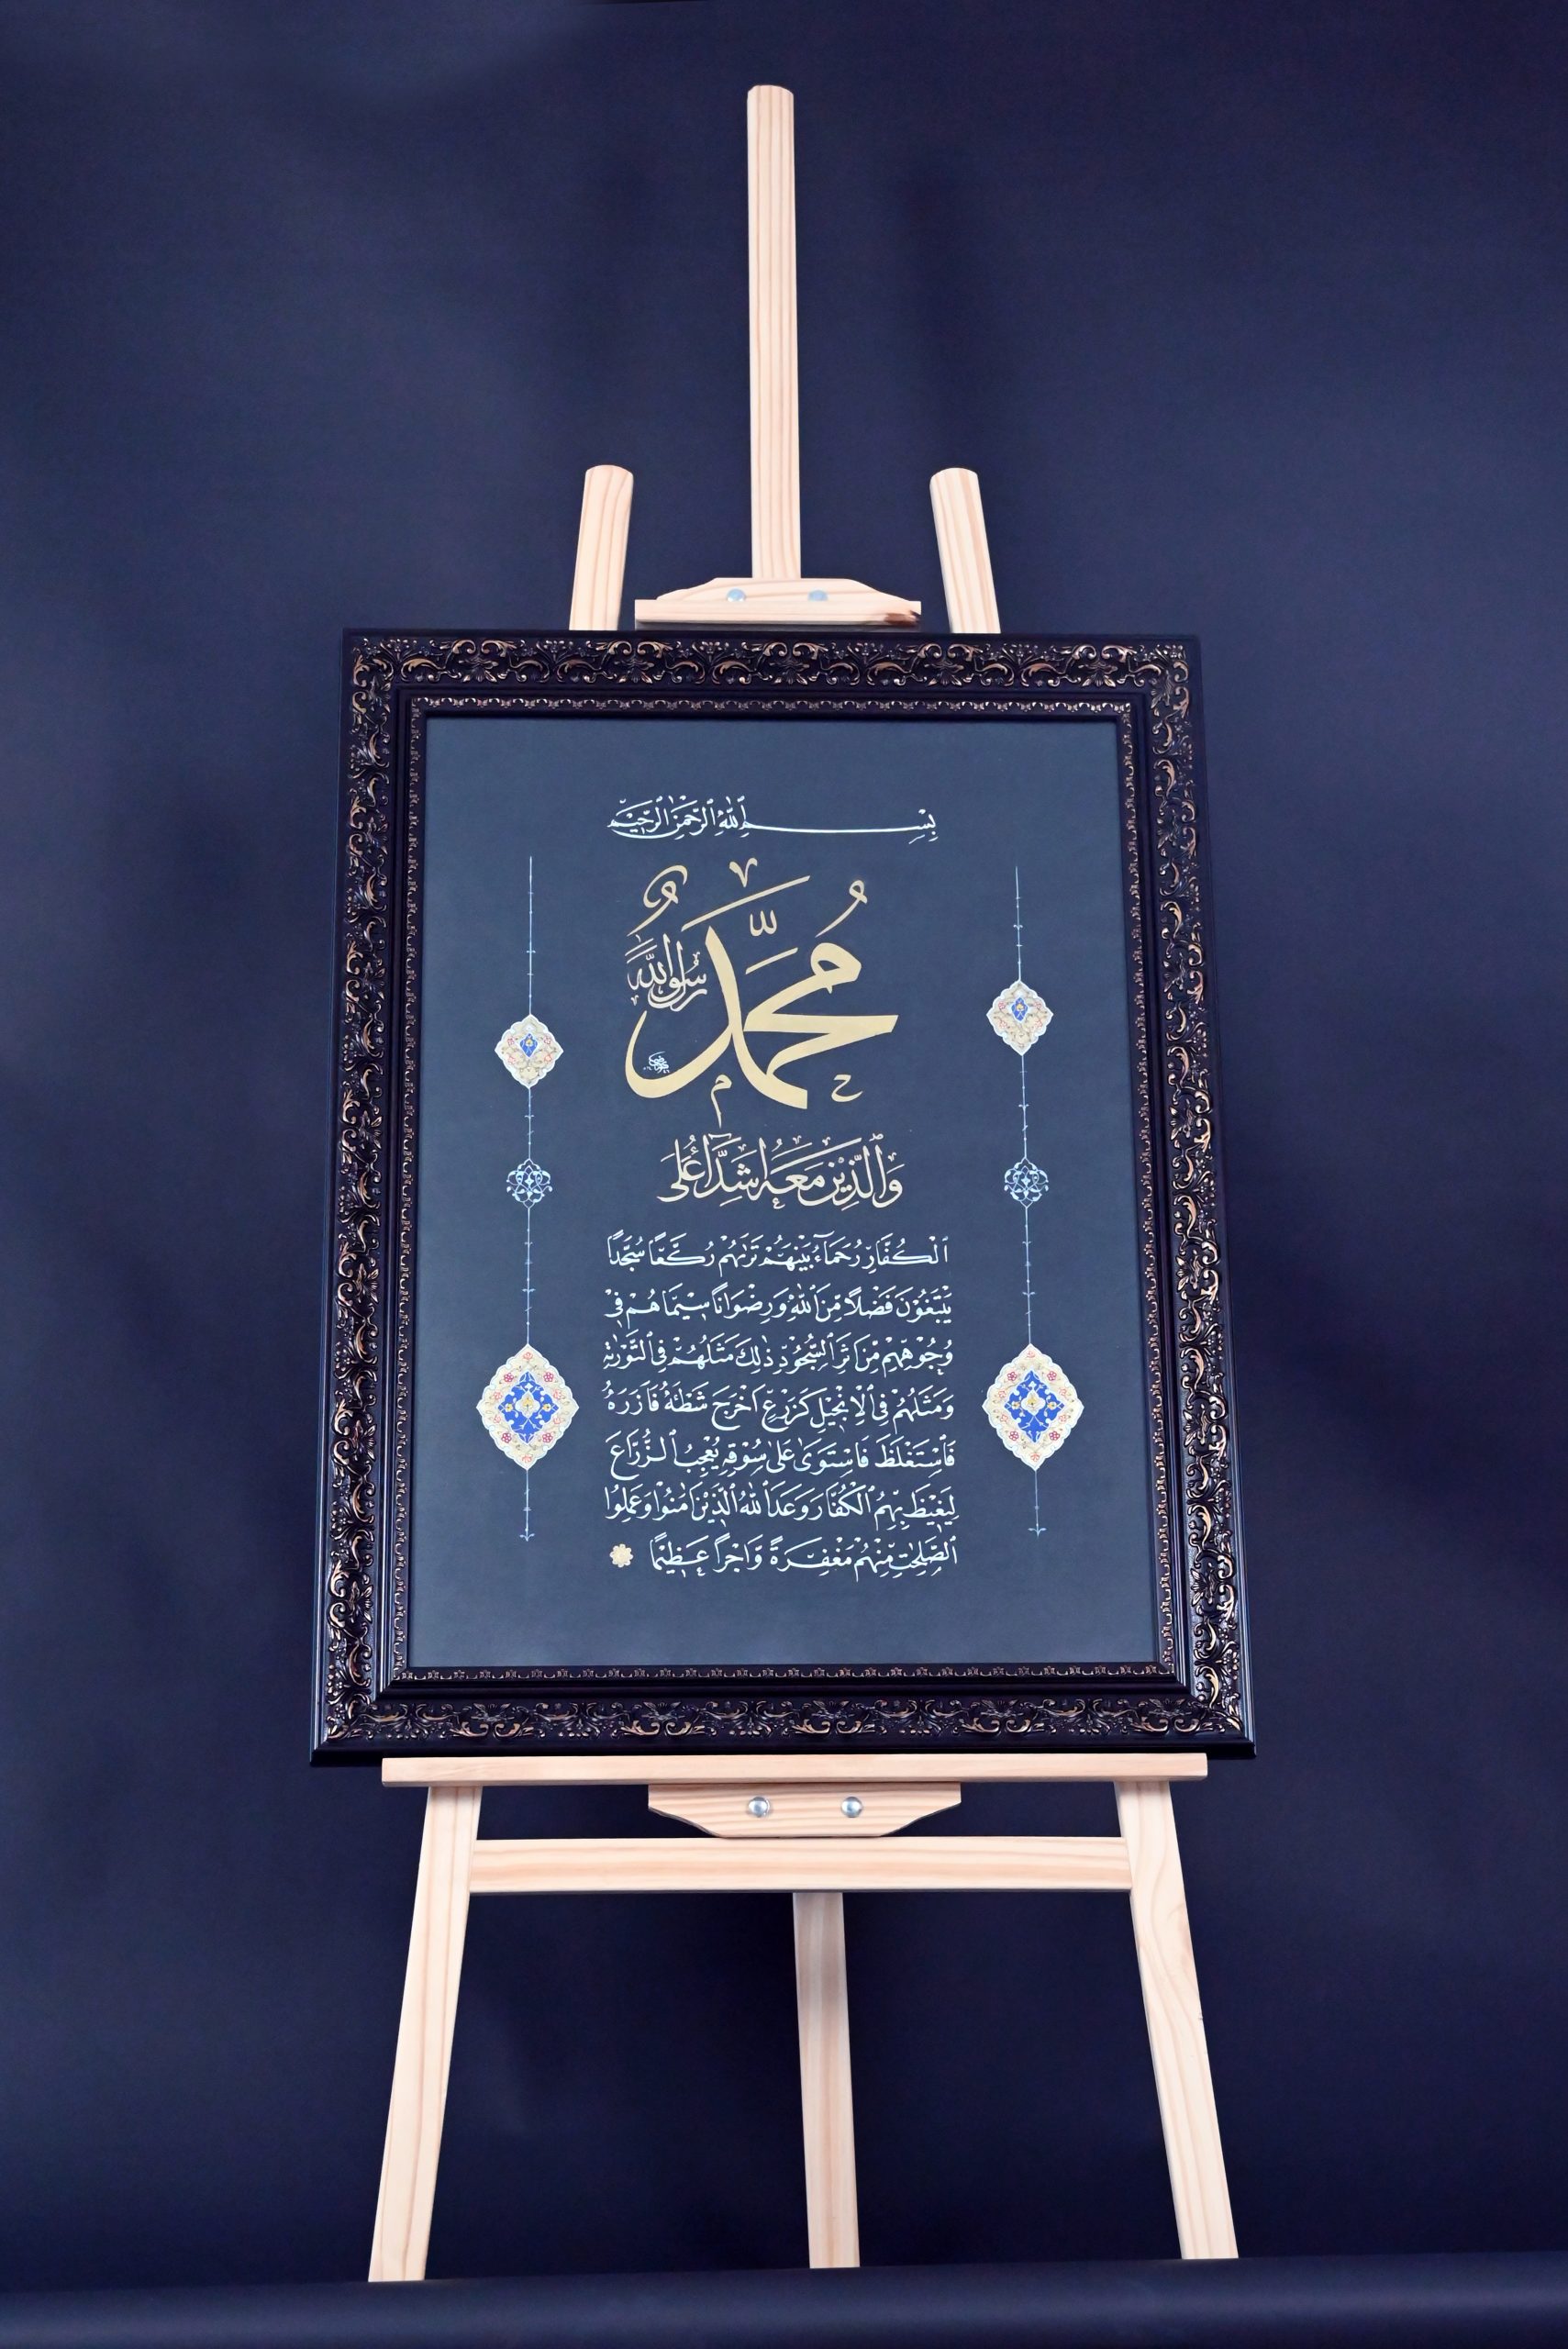 بِسْمِ ٱللّٰهِ ٱلرَّحْمٰنِ ٱلرَّحِيْمِ
مُحَمَّدٌ رَسُوْلُ اللّٰهِ
وَٱلَّذِيْنَ مَعَهٗٓ اَشِدَّآءُ عَلَى
ٱلْكُفَّارِ رُحَمَآءُ بَيْنَهُمْ تَرٰىهُمْ رُكَّعًا سُجَّدًا
يَّبْتَغُوْنَ فَضْلًا مِّنَ ٱللّٰهِ وَرِضْوَانًا سِيْمَاهُمْ فِيْ
وُجُوْهِهِمْ مِّنْ اَثَرِ ٱلسُّجُوْدِ ذٰلِكَ مَثَلُهُمْ فِي ٱلتَّوْرٰىةِ
وَمَثَلُهُمْ فِي ٱلْاِنْجِيْلِ كَزَرْعٍ اَخْرَجَ شَطْـَٔهٗ فَاٰزَرَهٗ
فَٱسْتَغْلَظَ فَاسْتَوٰى عَلٰى سُوْقِهٖ يُعْجِبُ ٱلزُّرَّاعَ
لِيَغِيْظَ بِهِمُ ٱلْكُفَّارَ وَعَدَ ٱللّٰهُ ٱلَّذِيْنَ اٰمَنُوْا وَعَمِلُوا
ٱلصّٰلِحٰتِ مِنْهُمْ مَّغْفِرَةً وَّاَجْرًا عَظِيْمًا